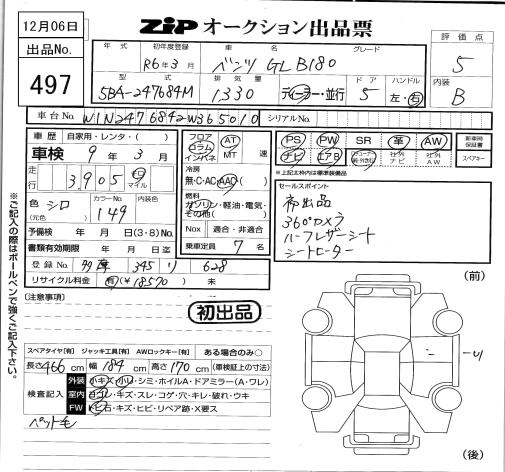 12月06日
ZiP オークション出品票
出品No.
497
評価点
5
内装
B
年式 初年度登録 車名 グレード
R6年3月 ベンツ GLB180
型式 排気量 ドア ハンドル
5BA-247684M 1330 ディーラー・並行 5 左・右
車台No. W1N2476842W365010 シリアルNo.
車歴 自家用・レンタ・( )
車検 9年3月
走行 3,905 キロ マイル
色 シロ カラーNo. 149 内装色
(元色)
予備検 年 月 日(3・8)No.
書類有効期限 年 月 日迄
登録No. 多摩 345 り 628
リサイクル料金 有(¥18570) 未
フロア コラム インパネ AT MT 速
冷房
無・C・AC・AAC
燃料
ガソリン・軽油・電気・その他( )
Nox 適合・非適合
乗車定員 7名
PS PW SR 革 AW
ナビ エアB 社外ナビ 社外AW
新車時保証書
スペアキー
※上記太枠内は標準装備品
セールスポイント
初出品
360°カメラ
ハーフレザーシート
シートヒーター
(注意事項)
初出品
スペアタイヤ[有] ジャッキ工具[有] AWロックキー[有] ある場合のみ○
長さ466cm 幅184cm 高さ170cm(車検証上の寸法)
検査記入
外装 小キズ・小凹・シミ・ホイルA・ドアミラー(A・ワレ)
室内 ヨゴレ・キズ・スレ・コゲ・穴・キレ・破れ・ウキ
FW トビ石・キズ・ヒビ・リペア跡・X要ス
ペット毛
(前)
(後)
※ご記入の際はボールペンで強くご記入下さい。